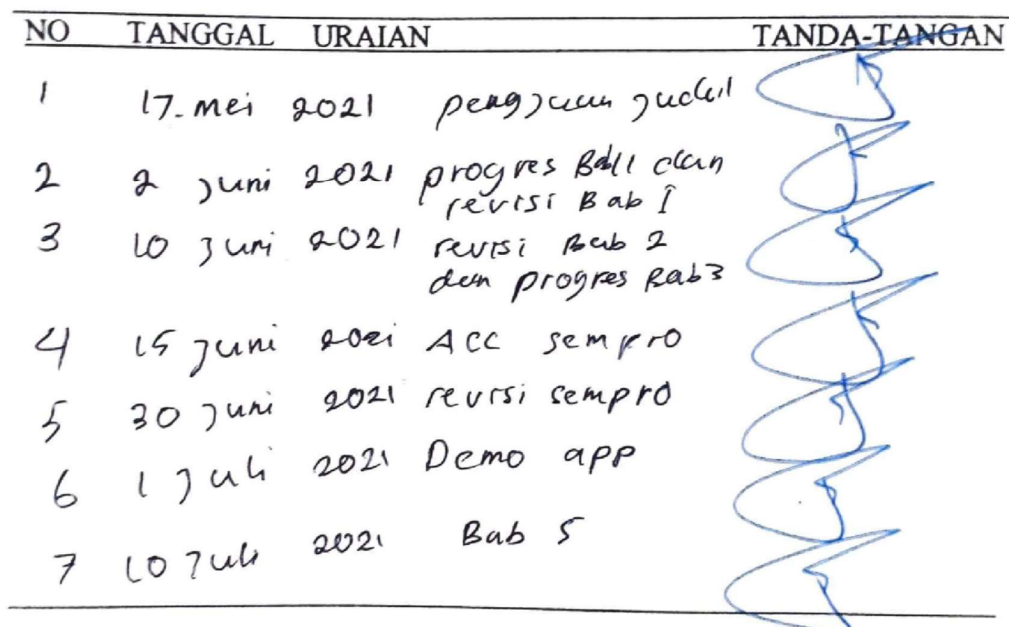 NO TANGGAL URAIAN TANDA-TANGAN
1 17. mei 2021 pengjuan judul
2 2 juni 2021 progres Bab1 dan
revisi Bab I
3 10 juni 2021 revisi Bab 2
dan progres Bab3
4 15 juni 2021 ACC sempro
5 30 juni 2021 revisi sempro
6 1 juli 2021 Demo app
7 10 juli 2021 Bab 5